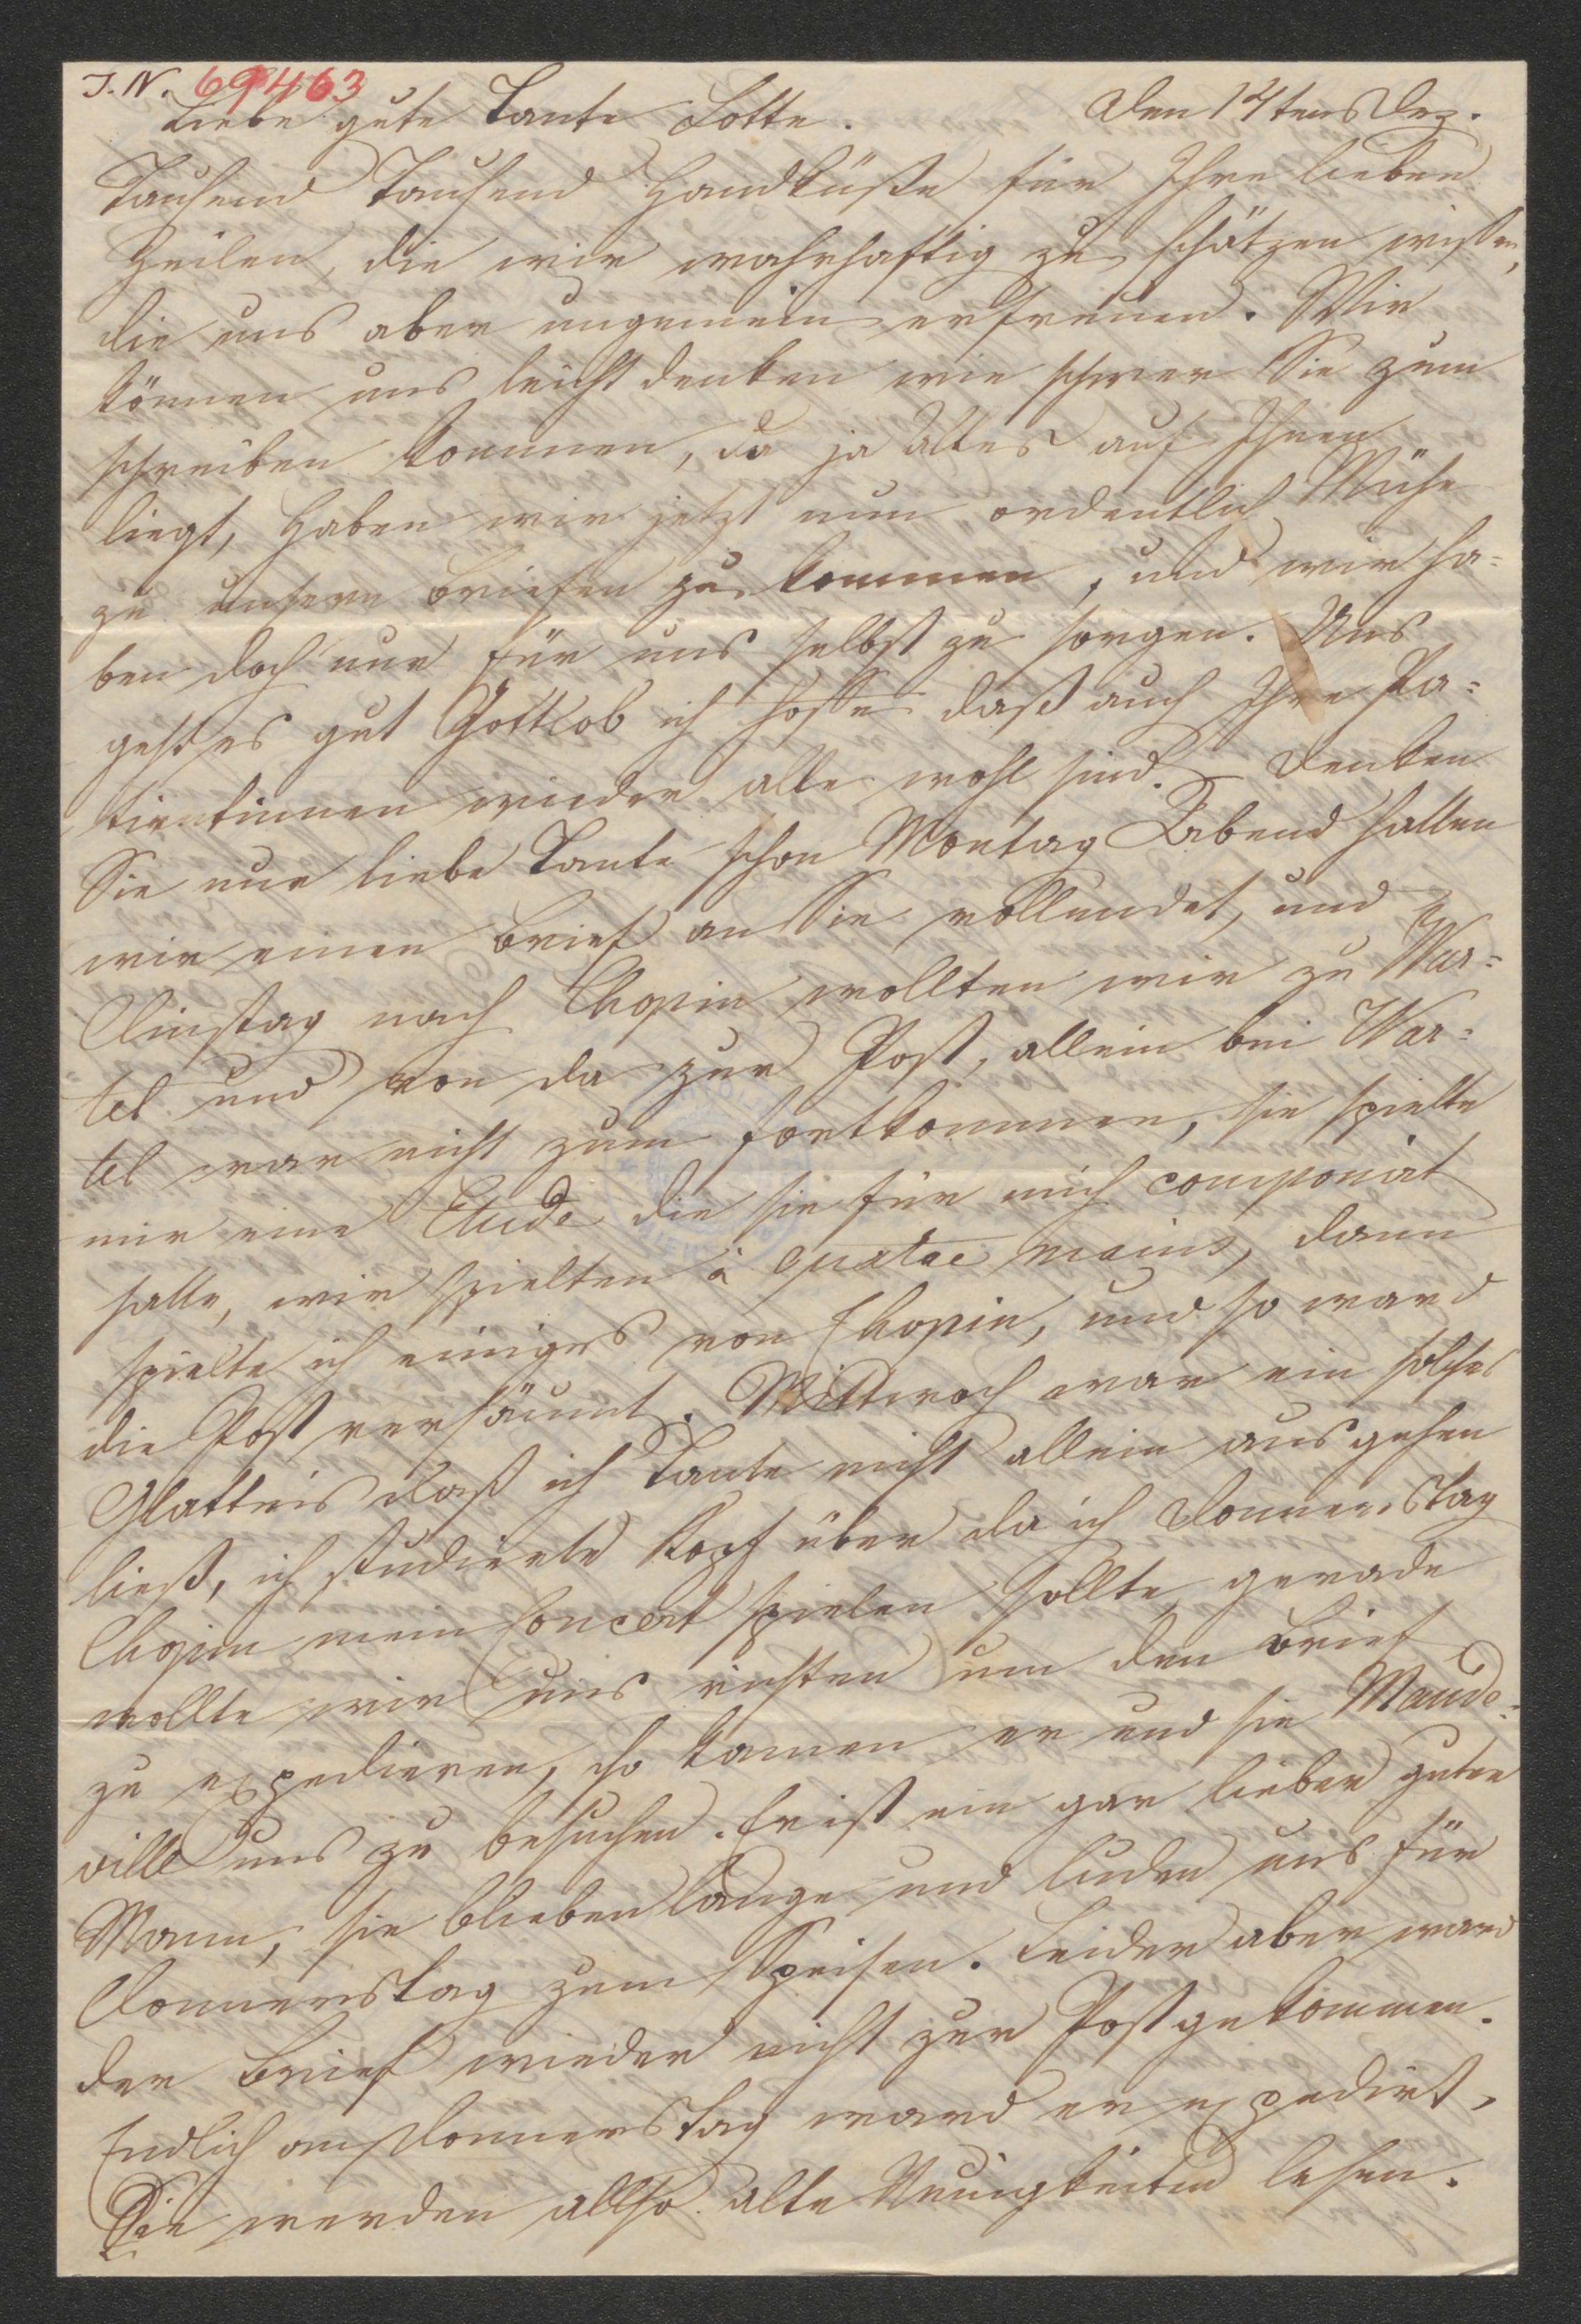 J. N. 69463
Liebe gute Tante Lotte. Den 14tens Dez.
Tausend Tausend Handküße für Ihre lieben
Zeilen, die wir wahrhaftig zu schätzen wissen,
die uns aber ungemein erfreuen. Wir
können uns leicht denken wie schwer Sie zum
schreiben kommen, da ja Alles auf Ihnen
liegt, haben wir jetzt nun ordentlich Mühe
zu unsern Briefen zu kommen, und wir ha=
ben doch nur für uns selbst zu sorgen. Uns
geht es gut Gottlob ich hoffe daß auch Ihre Pa=
tientinnen wieder alle wohl sind. Denken
Sie nur liebe Tante schon Montag Abend hatten
wir einen Brief an Sie vollendet, und
Dinstag nach Chopin wollten wir zu War=
tel und von da zur Post, allein bei War=
tel war nicht zum fortkommen, sie spielte
mir eine Etude die sie für mich componirt
hatte, wir spielten à quatre mains, dann
spielte ich einiges von Chopin, und so ward
die Post versäumt. Mittwoch war ein solches
Glatteis daß ich Tante nicht allein ausgehen
ließ, ich studierte Kopf über da ich Donnerstag
Chopin mein Concert spielen sollte, gerade
wollte wir uns richten um den Brief
zu expedieren, so kamen er und sie Maude=
ville uns zu besuchen. Er ist ein gar lieber guter
Mann, sie blieben lange und luden uns für
Donnerstag zum Speisen. Leider aber ward
der Brief wieder nicht zur Post gekommen.
Endlich am Donnerstag ward er expedirt,
Sie werden allso alte Neuigkeiten lesen.